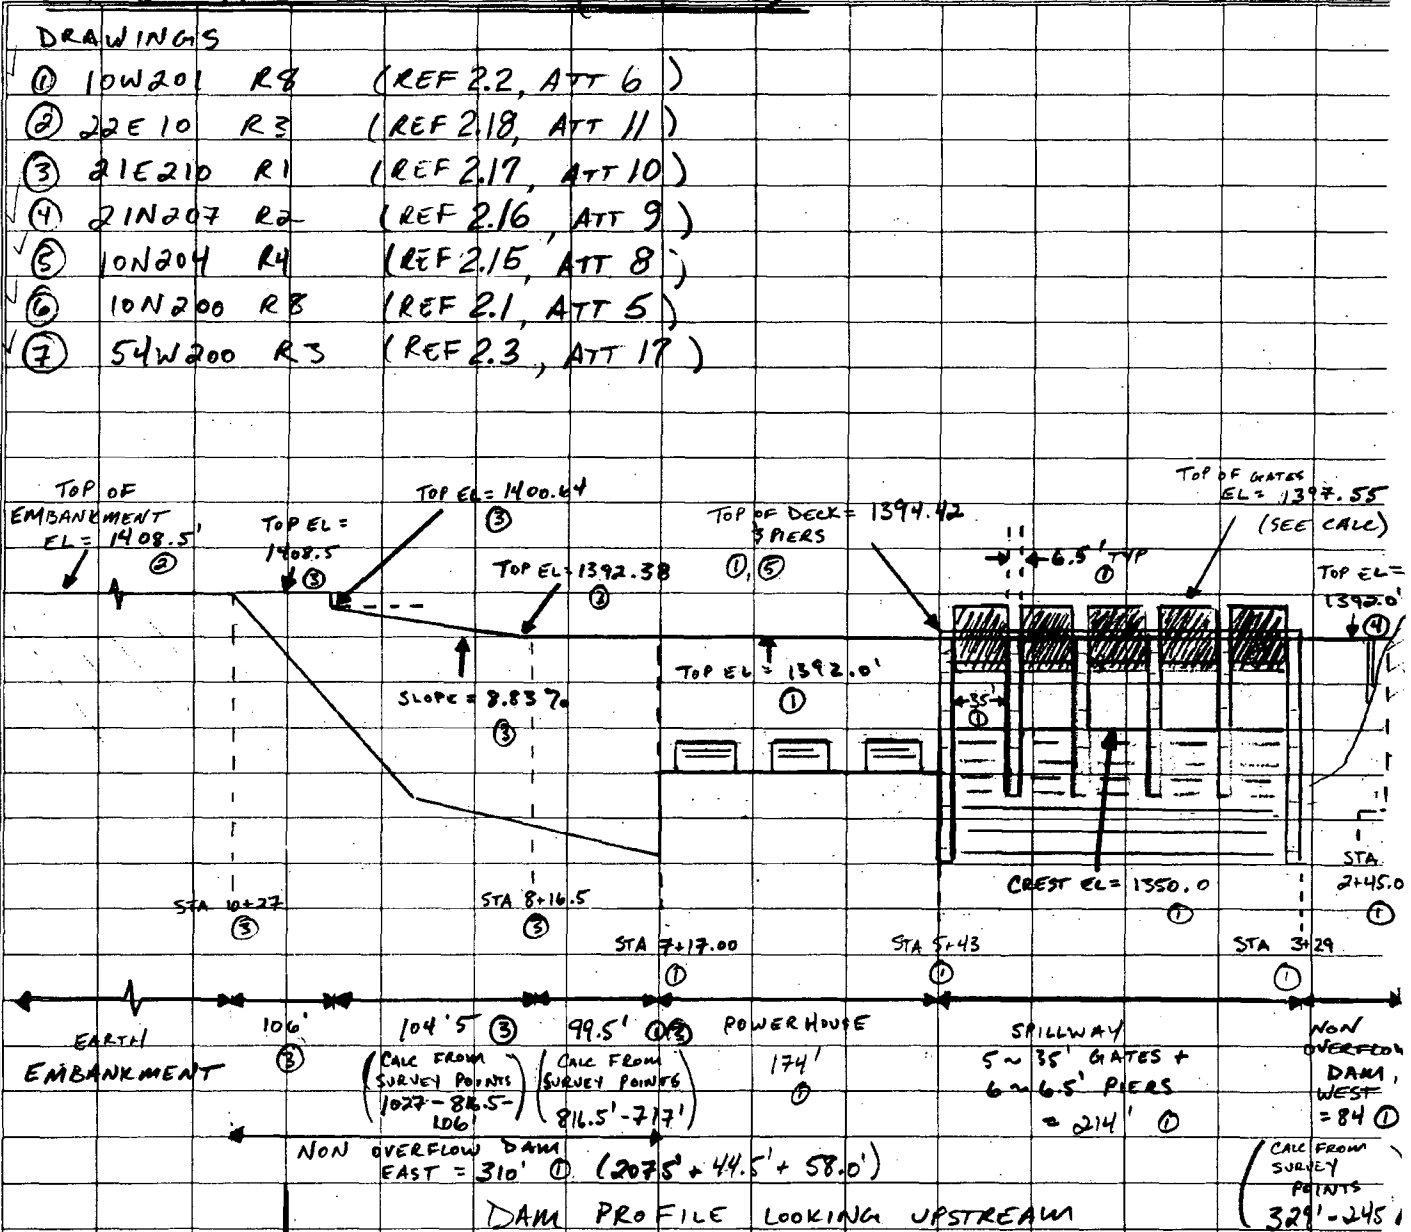 DRAWINGS
① 10W201 R8 (REF 2.2, ATT 6)
② 22E10 R3 (REF 2.18, ATT 11)
③ 21E210 R1 (REF 2.17, ATT 10)
④ 21N207 R2 (REF 2.16, ATT 9)
⑤ 10N204 R4 (REF 2.15, ATT 8)
⑥ 10N200 R8 (REF 2.1, ATT 5)
⑦ 54W200 R3 (REF 2.3, ATT 17)
TOP OF
EMBANKMENT
EL = 1408.5'
②
TOP EL =
1408.5
③
TOP EL = 1400.64
③
TOP EL = 1392.38
③
TOP OF DECK = 1394.42
& PIERS
①, ⑤
6.5' TYP
①
TOP OF GATES
EL = 1397.55
(SEE CALC)
TOP EL =
1392.0'
④
SLOPE = 8.83%
③
TOP EL = 1392.0'
①
35'
①
CREST EL = 1350.0
①
STA 10+27
③
STA 8+16.5
③
STA 7+17.00
①
STA 5+43
①
STA 3+29
①
STA
2+45.0
①
EARTH
EMBANKMENT
106'
③
104'5 ③
(CALC FROM
SURVEY POINTS
1027-816.5-
106')
99.5' ①③
(CALC FROM
SURVEY POINTS
816.5'-717')
POWERHOUSE
174'
①
SPILLWAY
5 ~ 35' GATES +
6 ~ 6.5' PIERS
= 214' ①
NON
OVERFLOW
DAM,
WEST
= 84 ①
(CALC FROM
SURVEY
POINTS
329'-245
NON OVERFLOW DAM
EAST = 310' ① (207.5' + 44.5' + 58.0')
DAM PROFILE LOOKING UPSTREAM